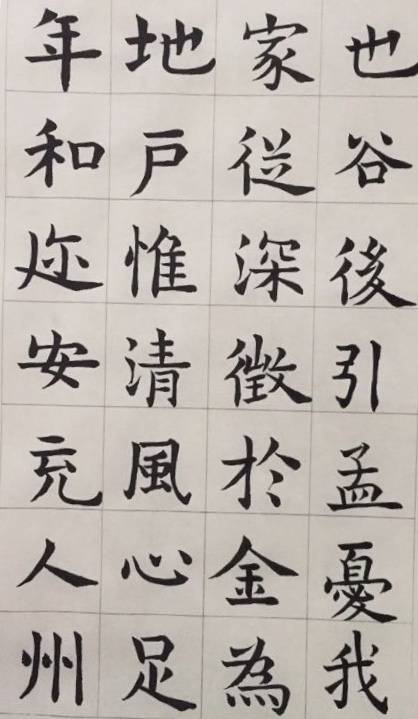 也谷後引孟憂我
家従深徵於金為
地戶惟清風心足
年和迩安充人州